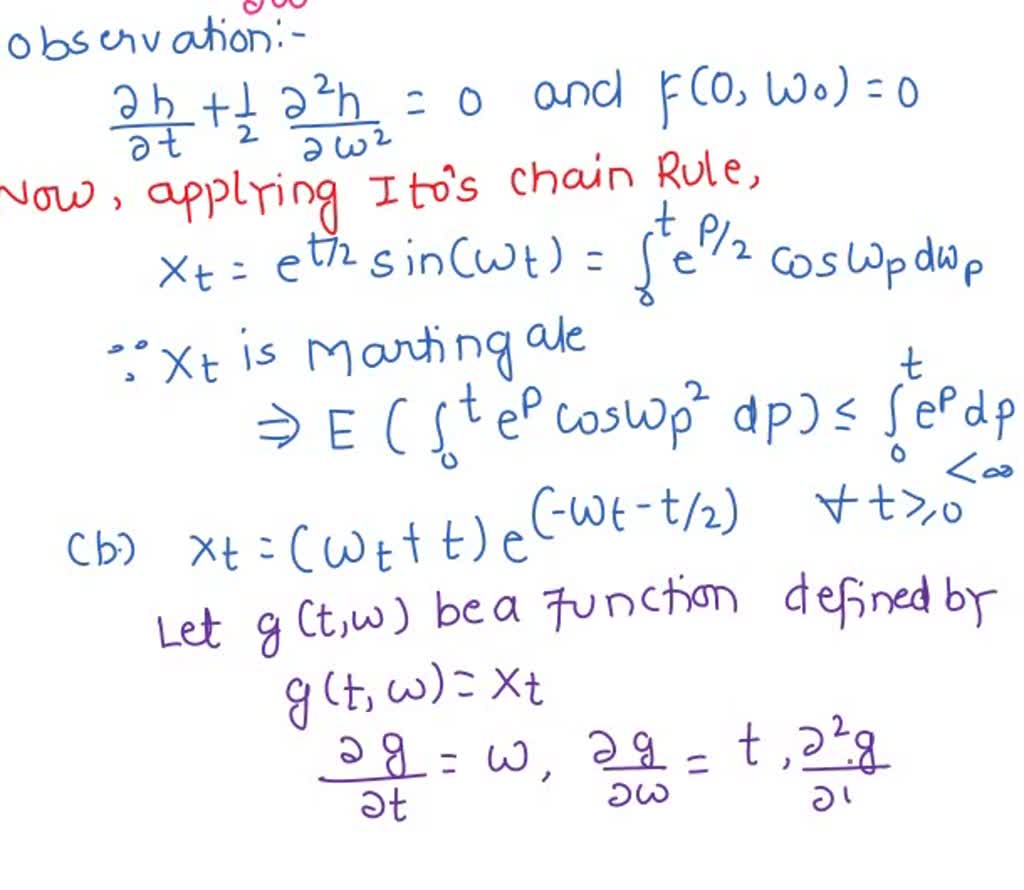 ∂ω
observation:-
∂h/∂t + 1/2 ∂²h/∂ω² = 0 and F(0, ω₀) = 0
Now, applying Ito's chain Rule,
Xt = e^(t/2) sin(ωt) = ∫₀^t e^(p/2) cos ωp dωp
∵ Xt is Martingale
⇒ E (∫₀^t e^p cos ωp² dp) ≤ ∫₀^t e^p dp
< ∞
(b.) Xt = (ωt + t) e^(-ωt - t/2) ∀ t ≥ 0
Let g(t,ω) be a function defined by
g(t, ω) = Xt
∂g/∂t = ω, ∂g/∂ω = t, ∂²g/∂